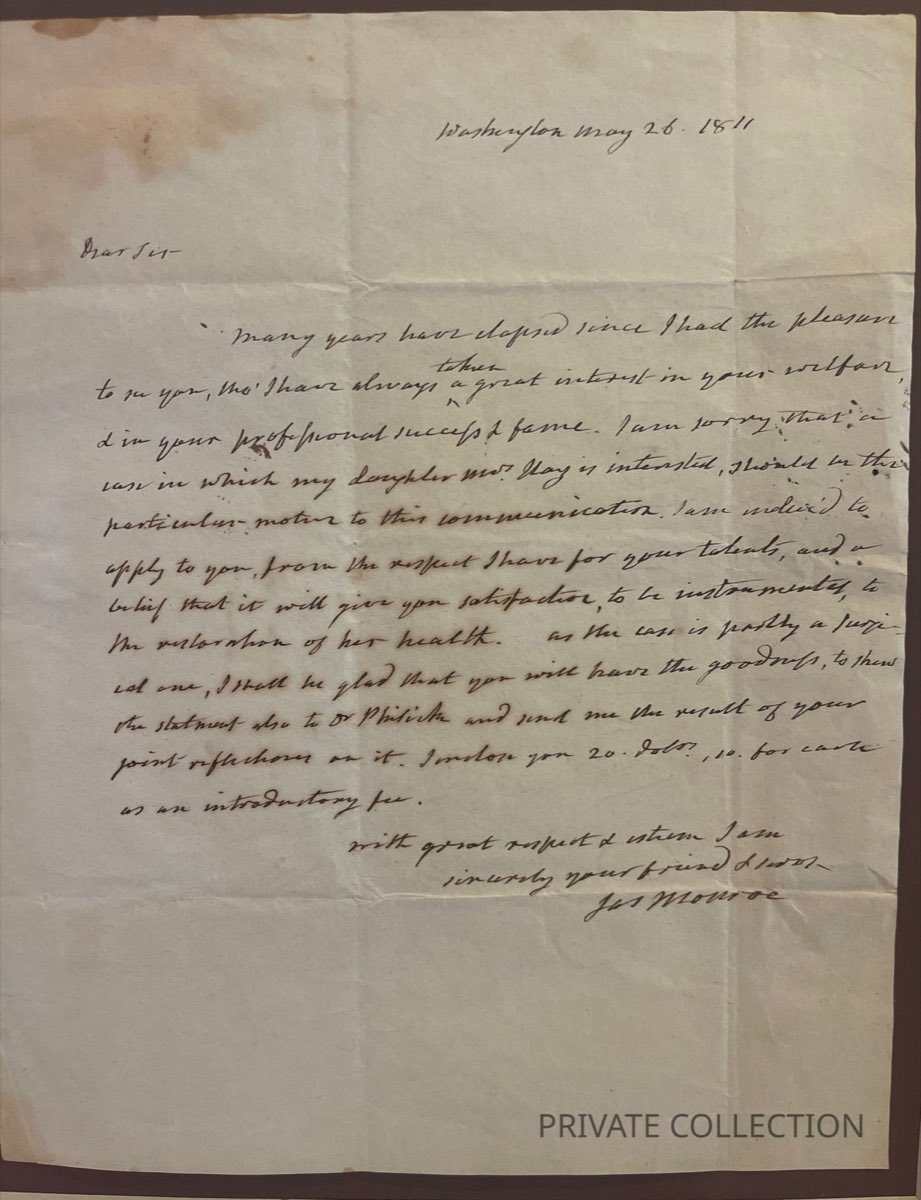 Washington May 26. 1811
Dear Sir
Many years have elapsed since I had the pleasure
to see you, tho' I have always taken a great interest in your welfare,
& in your professional success & fame. I am sorry that a
case in which my daughter Mrs. Hay is interested, should be the
particular motive to this communication. I am induc'd to
apply to you, from the respect I have for your talents, and a
belief that it will give you satisfaction, to be instrumental, to
the restoration of her health. as the case is partly a surgi-
cal one, I shall be glad that you will have the goodness, to shew
the statment also to Dr and send me the result of your
joint reflections on it. I inclose you 20. dolrs, 10. for each
as an introductory fee.
with great respect & esteem I am
sincerely your friend & servt
Jas Monroe
PRIVATE COLLECTION